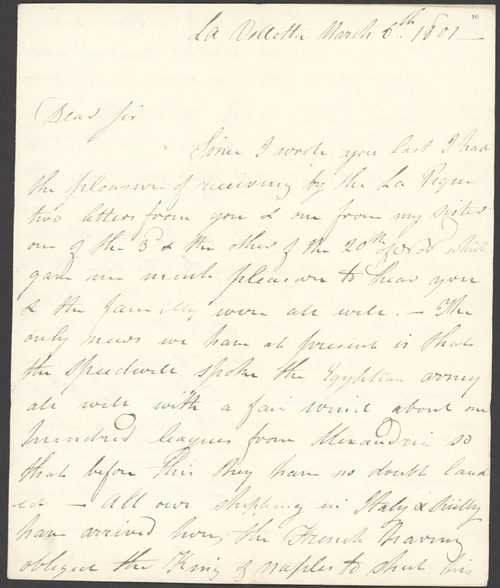 10
La Valletta March 6th 1801 —
Dear Sir
Since I wrote you last I had
the pleasure of receiving by the La Pique
two letters from you & one from my sister
one of the 3d & the other of the 20th of which
gave me much pleasure to hear you
& the familly were all well. — The
only news we have at present is that
the Speedwell spoke the Egyptian army
all well with a fair wind about one
hundred leagues from Alexandria so
that before this they have no doubt land
ed — All our shipping in Italy & Sicilly
have arrived here, the French having
obliged the King of Naples to shut his